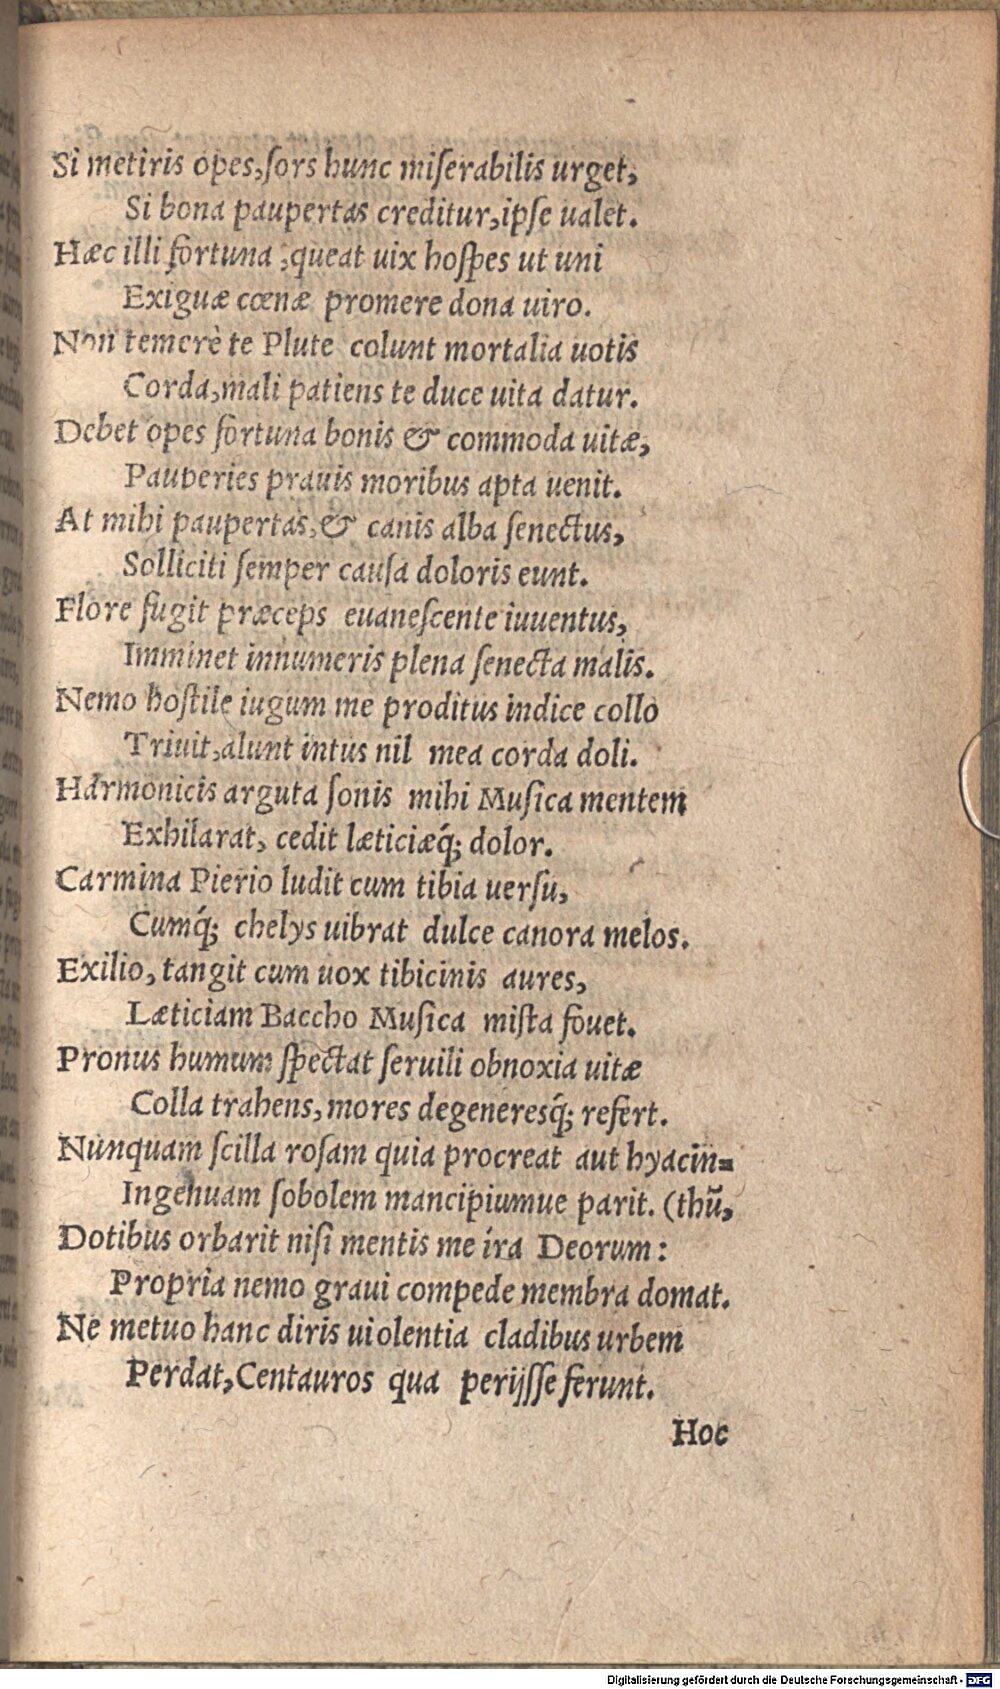 Si metiris opes, sors hunc miserabilis urget,
Si bona paupertas creditur, ipse ualet.
Hæc illi fortuna, queat uix hospes ut uni
Exiguæ cœnæ promere dona uiro.
Non temerè te Plute colunt mortalia uotis
Corda, mali patiens te duce uita datur.
Debet opes fortuna bonis & commoda uitæ,
Pauperies prauis moribus apta uenit.
At mihi paupertas, & canis alba senectus,
Solliciti semper causa doloris eunt.
Flore fugit præceps euanescente iuuentus,
Imminet innumeris plena senecta malis.
Nemo hostile iugum me proditus indice collo
Triuit, alunt intus nil mea corda doli.
Harmonicis arguta sonis mihi Musica mentem
Exhilarat, cedit læticiæq́; dolor.
Carmina Pierio ludit cum tibia uersu,
Cumq́; chelys uibrat dulce canora melos.
Exilio, tangit cum uox tibicinis aures,
Læticiam Baccho Musica mista fouet.
Pronus humum spectat seruili obnoxia uitæ
Colla trahens, mores degeneresq́; refert.
Nunquam scilla rosam quia procreat aut hyacin-
Ingenuam sobolem mancipiumue parit. (thū,
Dotibus orbarit nisi mentis me íra Deorum:
Propria nemo graui compede membra domat.
Ne metuo hanc diris uiolentia cladibus urbem
Perdat, Centauros qua perijsse ferunt.
Hoc
Digitalisierung gefördert durch die Deutsche Forschungsgemeinschaft - DFG